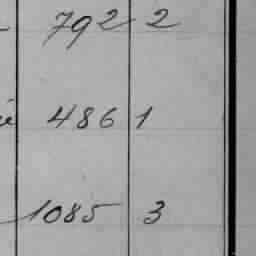 792 2
486 1
1085 3